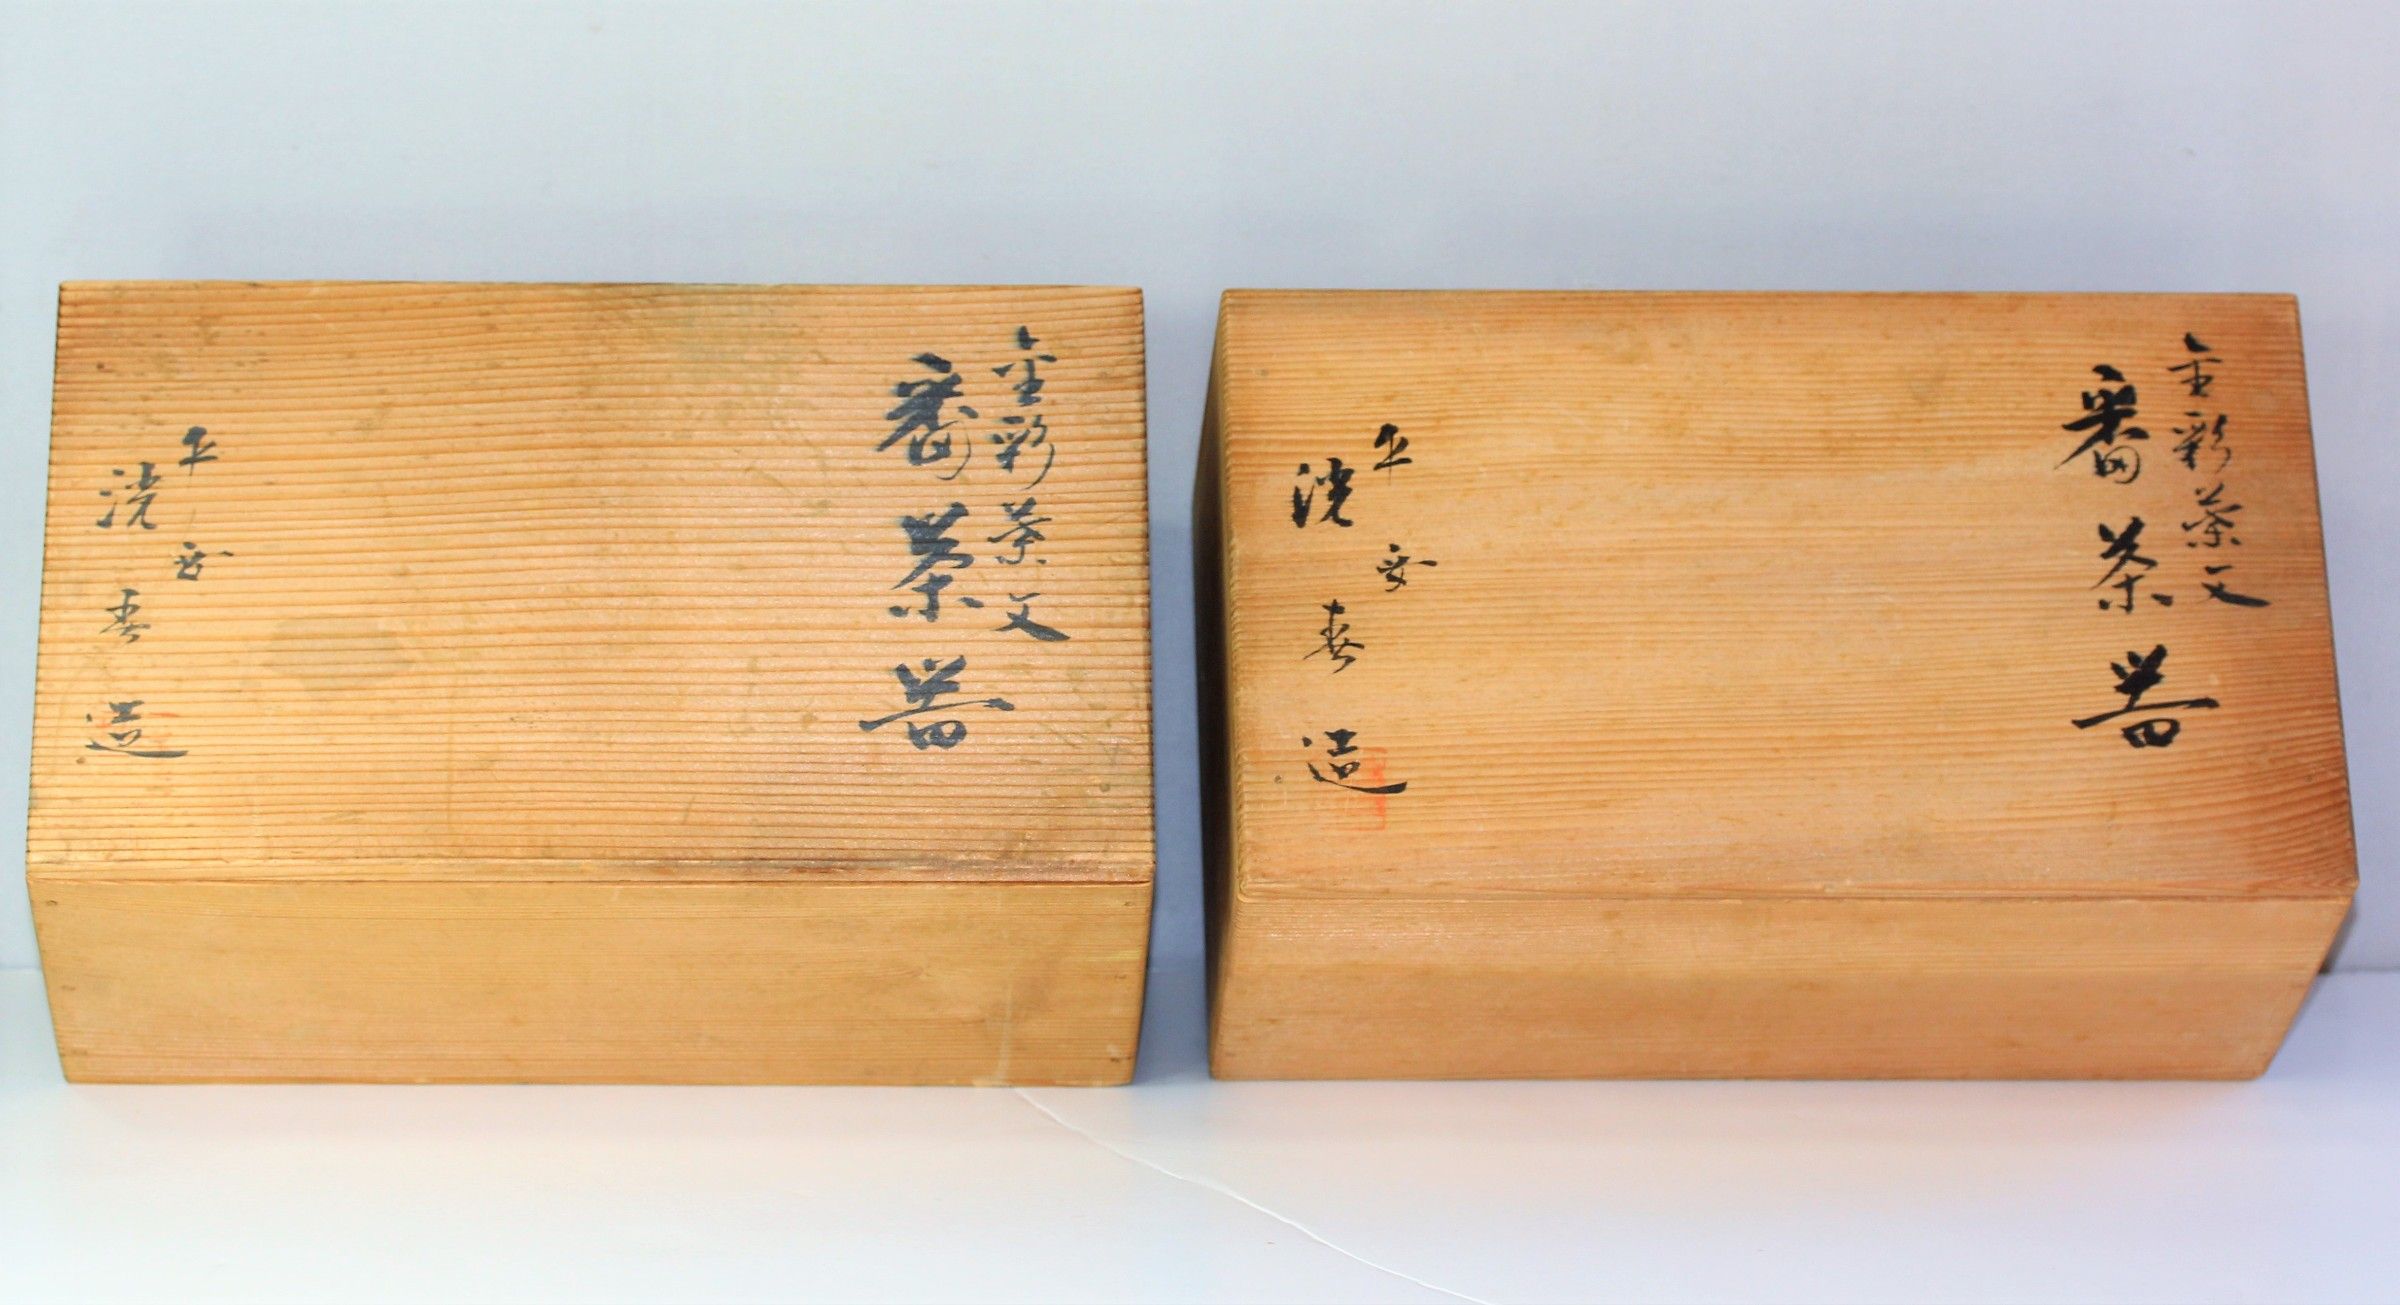 金彩茶文
番茶器
平安
洸春造
金彩茶文
番茶器
平安
洸春造